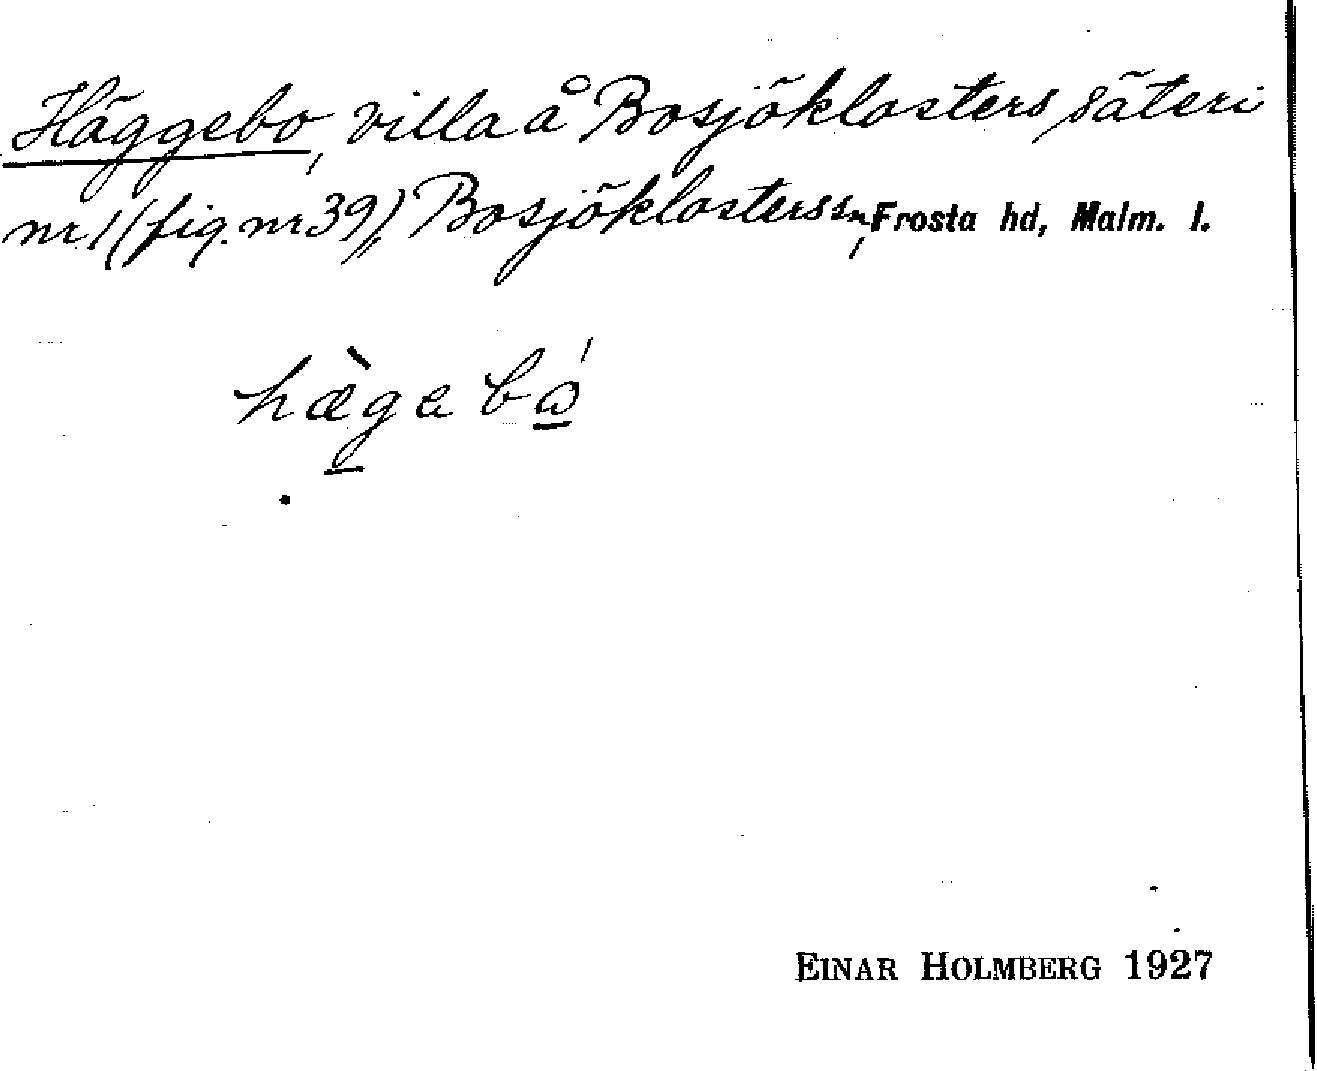 Häggebo, villa å Bosjöklosters säteri
nr 1 (fig. nr 39), Bosjöklosters sn, Frosta hd, Malm. l.
hæ̀gebó
EINAR HOLMBERG 1927